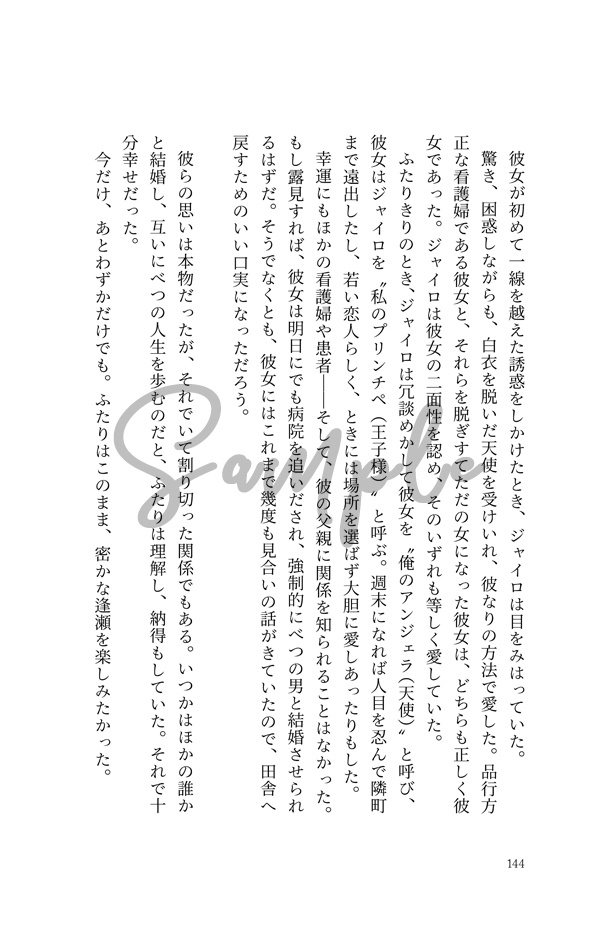 彼女が初めて一線を越えた誘惑をしかけたとき、ジャイロは目をみはっていた。
驚き、困惑しながらも、白衣を脱いだ天使を受けいれ、彼なりの方法で愛した。品行方
正な看護婦である彼女と、それらを脱ぎすてただの女になった彼女は、どちらも正しく彼
女であった。ジャイロは彼女の二面性を認め、そのいずれも等しく愛していた。
ふたりきりのとき、ジャイロは冗談めかして彼女を〝俺のアンジェラ（天使）〟と呼び、
彼女はジャイロを〝私のプリンチペ（王子様）〟と呼ぶ。週末になれば人目を忍んで隣町
まで遠出したし、若い恋人らしく、ときには場所を選ばず大胆に愛しあったりもした。
幸運にもほかの看護婦や患者――そして、彼の父親に関係を知られることはなかった。
もし露見すれば、彼女は明日にでも病院を追いだされ、強制的にべつの男と結婚させられ
るはずだ。そうでなくとも、彼女にはこれまで幾度も見合いの話がきていたので、田舎へ
戻すためのいい口実になっただろう。
彼らの思いは本物だったが、それでいて割り切った関係でもある。いつかはほかの誰か
と結婚し、互いにべつの人生を歩むのだと、ふたりは理解し、納得もしていた。それで十
分幸せだった。
今だけ、あとわずかだけでも。ふたりはこのまま、密かな逢瀬を楽しみたかった。
Sample
144